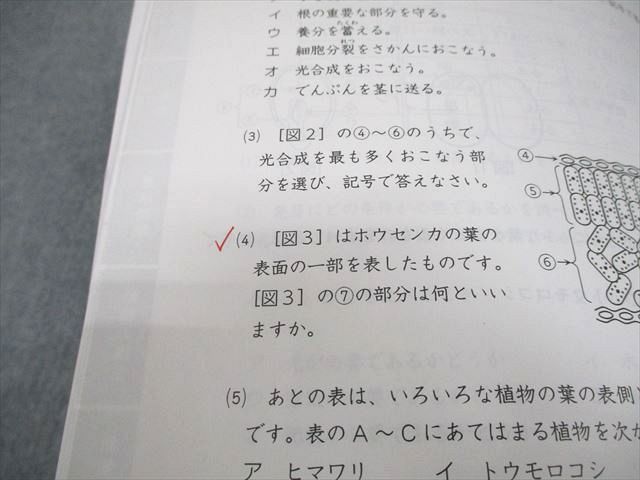 イ 根の重要な部分を守る。
ウ 養分を蓄える。
エ 細胞分裂をさかんにおこなう。
オ 光合成をおこなう。
カ でんぷんを茎に送る。
(3) [図2]の④～⑥のうちで、
光合成を最も多くおこなう部
分を選び、記号で答えなさい。
④
⑤
⑥
(4) [図3]はホウセンカの葉の
表面の一部を表したものです。
[図3]の⑦の部分は何といい
ますか。
(5) あとの表は、いろいろな植物の葉の表側
です。表のA～Cにあてはまる植物を次か
ア ヒマワリ イ トウモロコシ